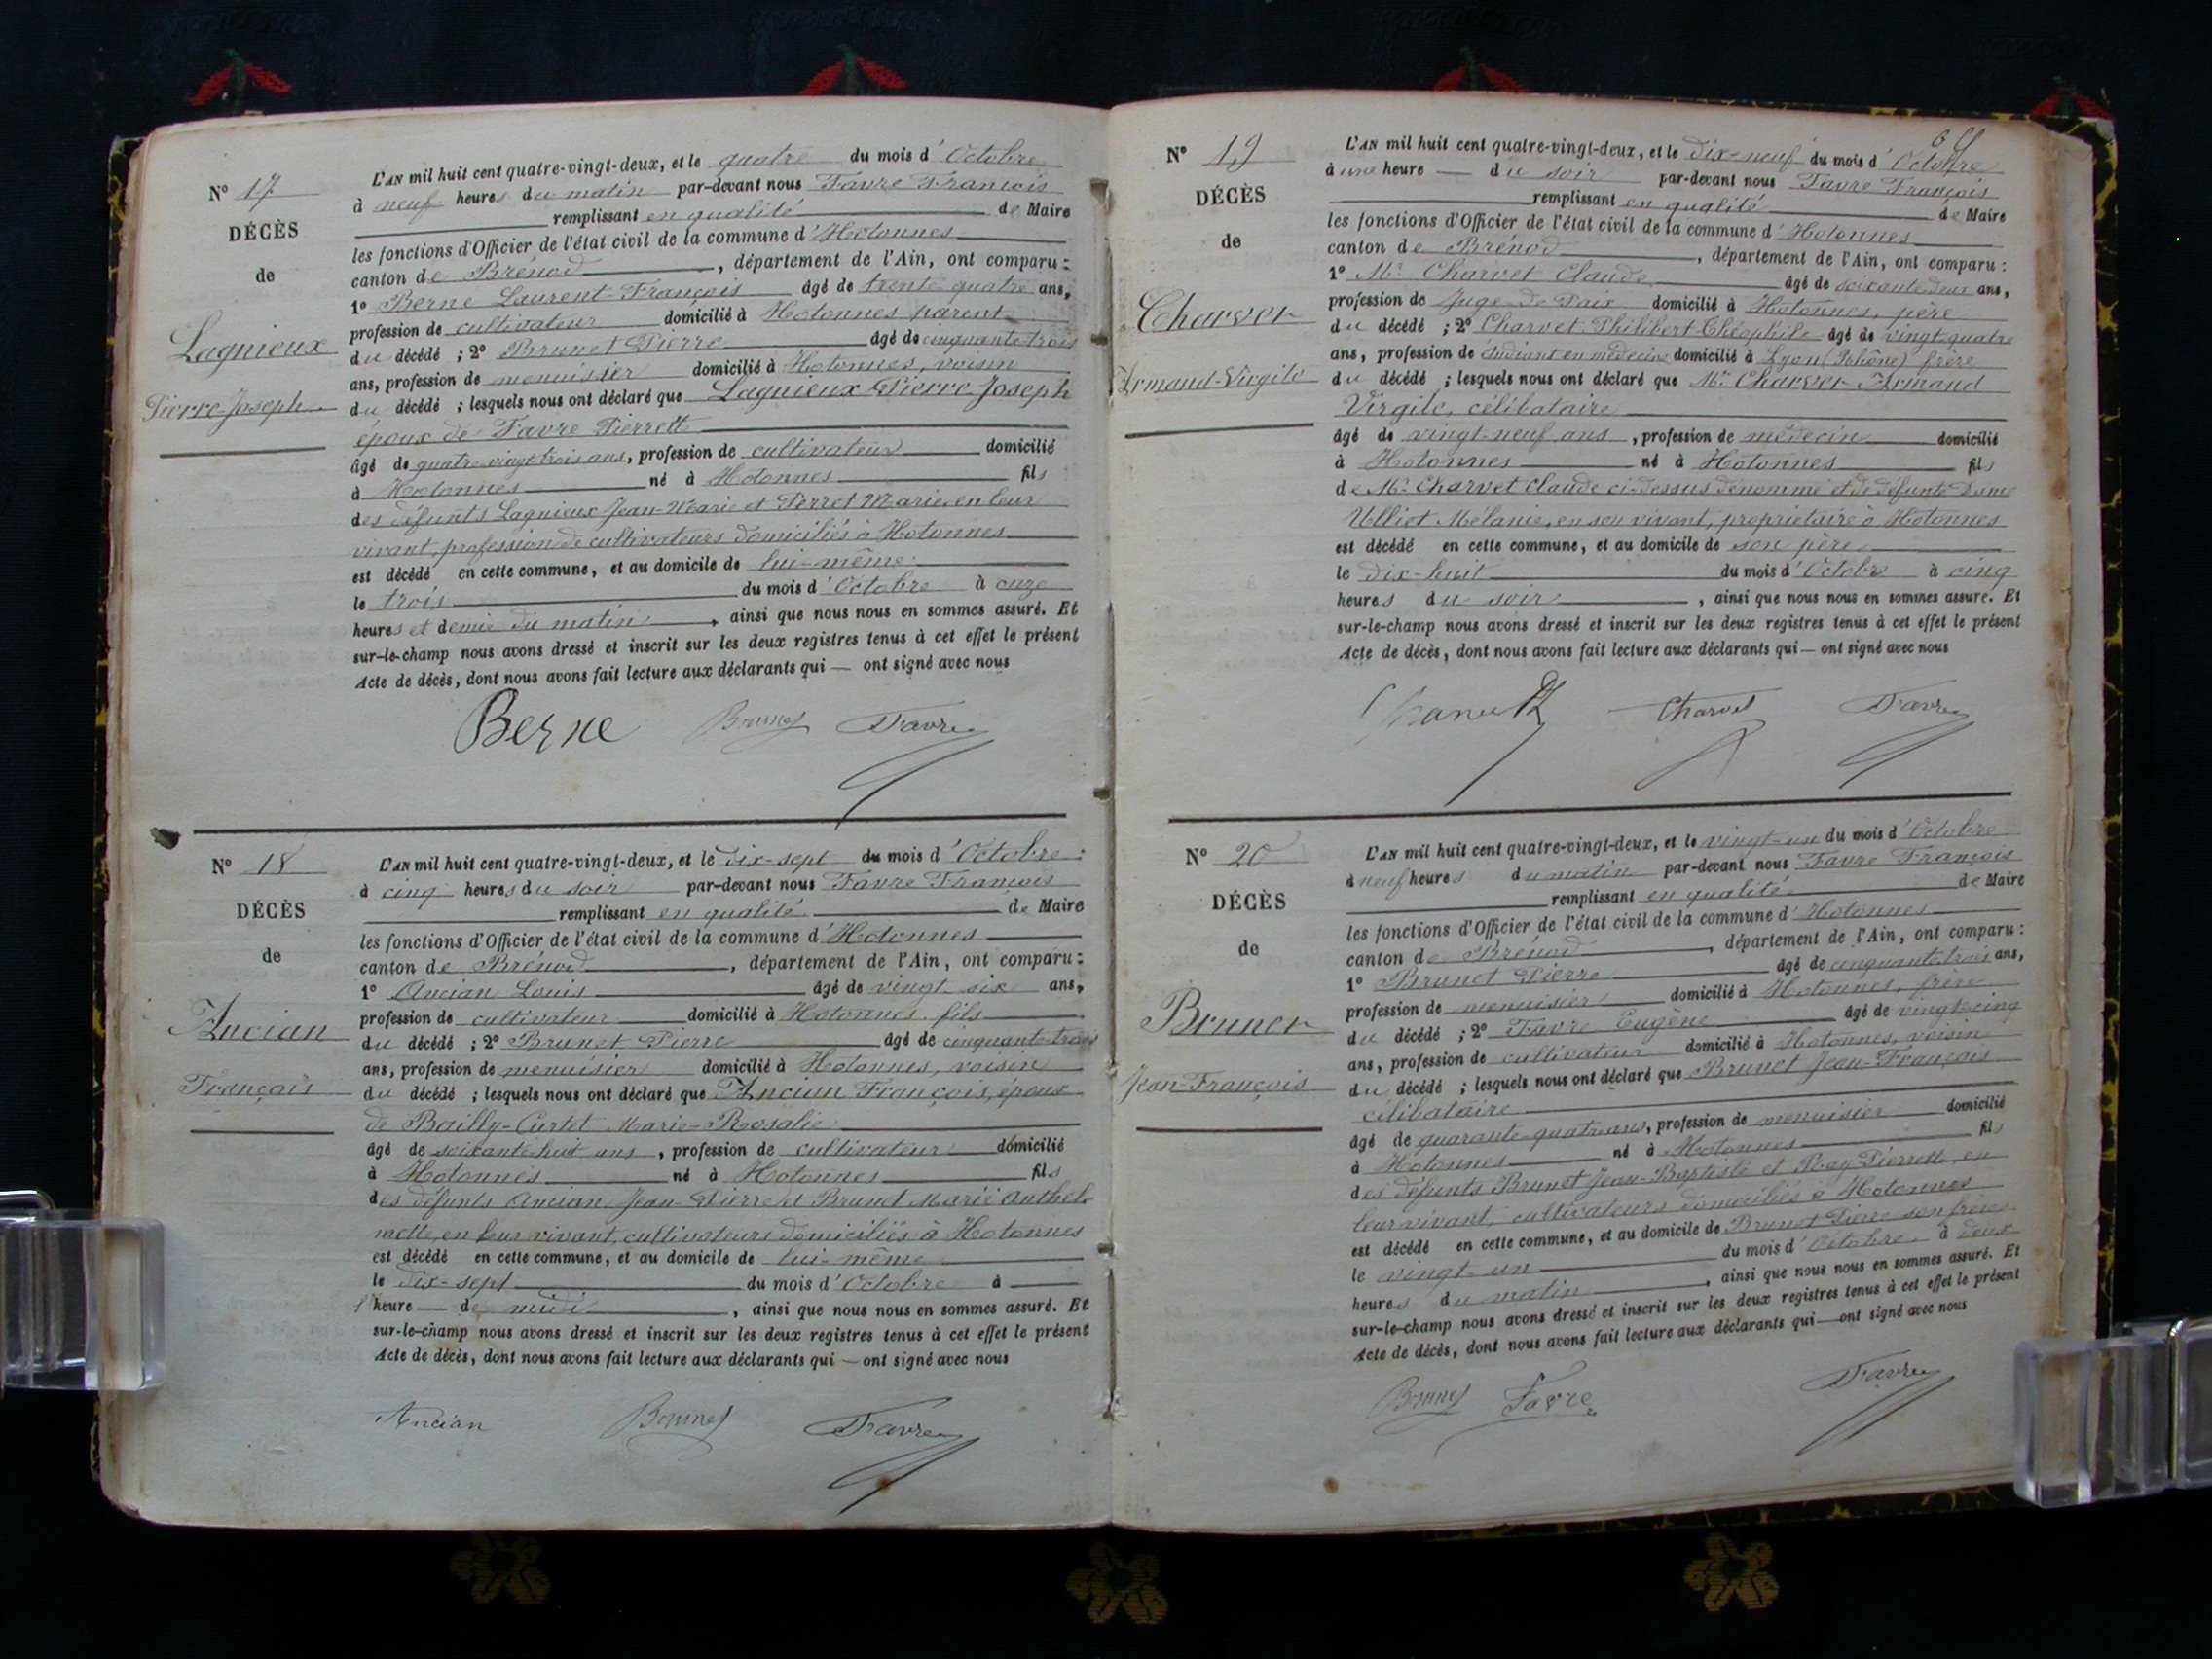 N° 17
DÉCÈS
de
Lagnieux
Pierre-Joseph
L'AN mil huit cent quatre-vingt-deux, et le quatre du mois d'Octobre
à neuf heures du matin par-devant nous Favre François
remplissant en qualité de Maire
les fonctions d'Officier de l'état civil de la commune d'Hotonnes
canton de Brénod, département de l'Ain, ont comparu :
1° Berne Laurent-François âgé de trente quatre ans,
profession de cultivateur domicilié à Hotonnes parent
du décédé ; 2° Brunet Pierre âgé de cinquante trois
ans, profession de menuisier domicilié à Hotonnes, voisin
du décédé ; lesquels nous ont déclaré que Lagnieux Pierre Joseph
époux de Favre Pierrett
âgé de quatre vingt trois ans, profession de cultivateur domicilié
à Hotonnes né à Hotonnes fils
des défunts Lagnieux Jean-Marie et Perret Marie, en leur
vivant, profession de cultivateurs domiciliés à Hotonnes
est décédé en cette commune, et au domicile de lui-même
le trois du mois d'Octobre à onze
heures et demie du matin, ainsi que nous nous en sommes assuré. Et
sur-le-champ nous avons dressé et inscrit sur les deux registres tenus à cet effet le présent
Acte de décès, dont nous avons fait lecture aux déclarants qui — ont signé avec nous
Berne Brunet Favre
N° 18
DÉCÈS
de
Ancian
Français
L'AN mil huit cent quatre-vingt-deux, et le dix-sept du mois d'Octobre
à cinq heures du soir par-devant nous Favre François
remplissant en qualité de Maire
les fonctions d'Officier de l'état civil de la commune d'Hotonnes
canton de Brénod, département de l'Ain, ont comparu :
1° Ancian Louis âgé de vingt six ans,
profession de cultivateur domicilié à Hotonnes fils
du décédé ; 2° Brunet Pierre âgé de cinquante trois
ans, profession de menuisier domicilié à Hotonnes, voisin
du décédé ; lesquels nous ont déclaré que Ancian François, époux
de Bailly-Curtet Marie-Rosalie
âgé de soixante huit ans, profession de cultivateur domicilié
à Hotonnes né à Hotonnes fils
des défunts Ancian Jean-Pierre et Brunet Marie Anthel
mette, en leur vivant, cultivateurs domiciliés à Hotonnes
est décédé en cette commune, et au domicile de lui-même
le dix-sept du mois d'Octobre à —
l'heure — de midi, ainsi que nous nous en sommes assuré. Et
sur-le-champ nous avons dressé et inscrit sur les deux registres tenus à cet effet le présent
Acte de décès, dont nous avons fait lecture aux déclarants qui — ont signé avec nous
Ancian Brunet Favre
N° 19
DÉCÈS
de
Charvet
Armand-Virgile
L'AN mil huit cent quatre-vingt-deux, et le dix-neuf du mois d'Octobre
à une heure — du soir par-devant nous Favre François
remplissant en qualité de Maire
les fonctions d'Officier de l'état civil de la commune d'Hotonnes
canton de Brénod, département de l'Ain, ont comparu :
1° Mr Charvet Claude âgé de soixante deux ans,
profession de Juge de Paix domicilié à Hotonnes, père
du décédé ; 2° Charvet Philibert-Théophile âgé de vingt quatre
ans, profession de étudiant en médecine domicilié à Lyon (Rhône) frère
du décédé ; lesquels nous ont déclaré que Mr Charvet Armand
Virgile, célibataire
âgé de vingt-neuf ans, profession de médecin domicilié
à Hotonnes né à Hotonnes fils
de Mr Charvet Claude ci-dessus dénommé et de défunte Dame
Ulliet Mélanie, en son vivant, propriétaire à Hotonnes
est décédé en cette commune, et au domicile de son père
le dix-huit du mois d'Octobre à cinq
heures du soir, ainsi que nous nous en sommes assuré. Et
sur-le-champ nous avons dressé et inscrit sur les deux registres tenus à cet effet le présent
Acte de décès, dont nous avons fait lecture aux déclarants qui — ont signé avec nous
Charvet Favre
N° 20
DÉCÈS
de
Brunet
Jean-François
L'AN mil huit cent quatre-vingt-deux, et le vingt-un du mois d'Octobre
à neuf heures du matin par-devant nous Favre François
remplissant en qualité de Maire
les fonctions d'Officier de l'état civil de la commune d'Hotonnes
canton de Brénod, département de l'Ain, ont comparu :
1° Brunet Pierre âgé de cinquante trois ans,
profession de menuisier domicilié à Hotonnes, frère
du décédé ; 2° Favre Eugène âgé de vingt-cinq
ans, profession de cultivateur domicilié à Hotonnes, voisin
du décédé ; lesquels nous ont déclaré que Brunet Jean-François
célibataire
âgé de quarante-quatre ans, profession de menuisier domicilié
à Hotonnes né à Hotonnes fils
des défunts Brunet Jean-Baptiste et Ray Pierrett, en
leur vivant, cultivateurs domiciliés à Hotonnes
est décédé en cette commune, et au domicile de Brunet Pierre son frère
le vingt-un du mois d'Octobre à deux
heures du matin, ainsi que nous nous en sommes assuré. Et
sur-le-champ nous avons dressé et inscrit sur les deux registres tenus à cet effet le présent
Acte de décès, dont nous avons fait lecture aux déclarants qui — ont signé avec nous
Brunet Favre Favre